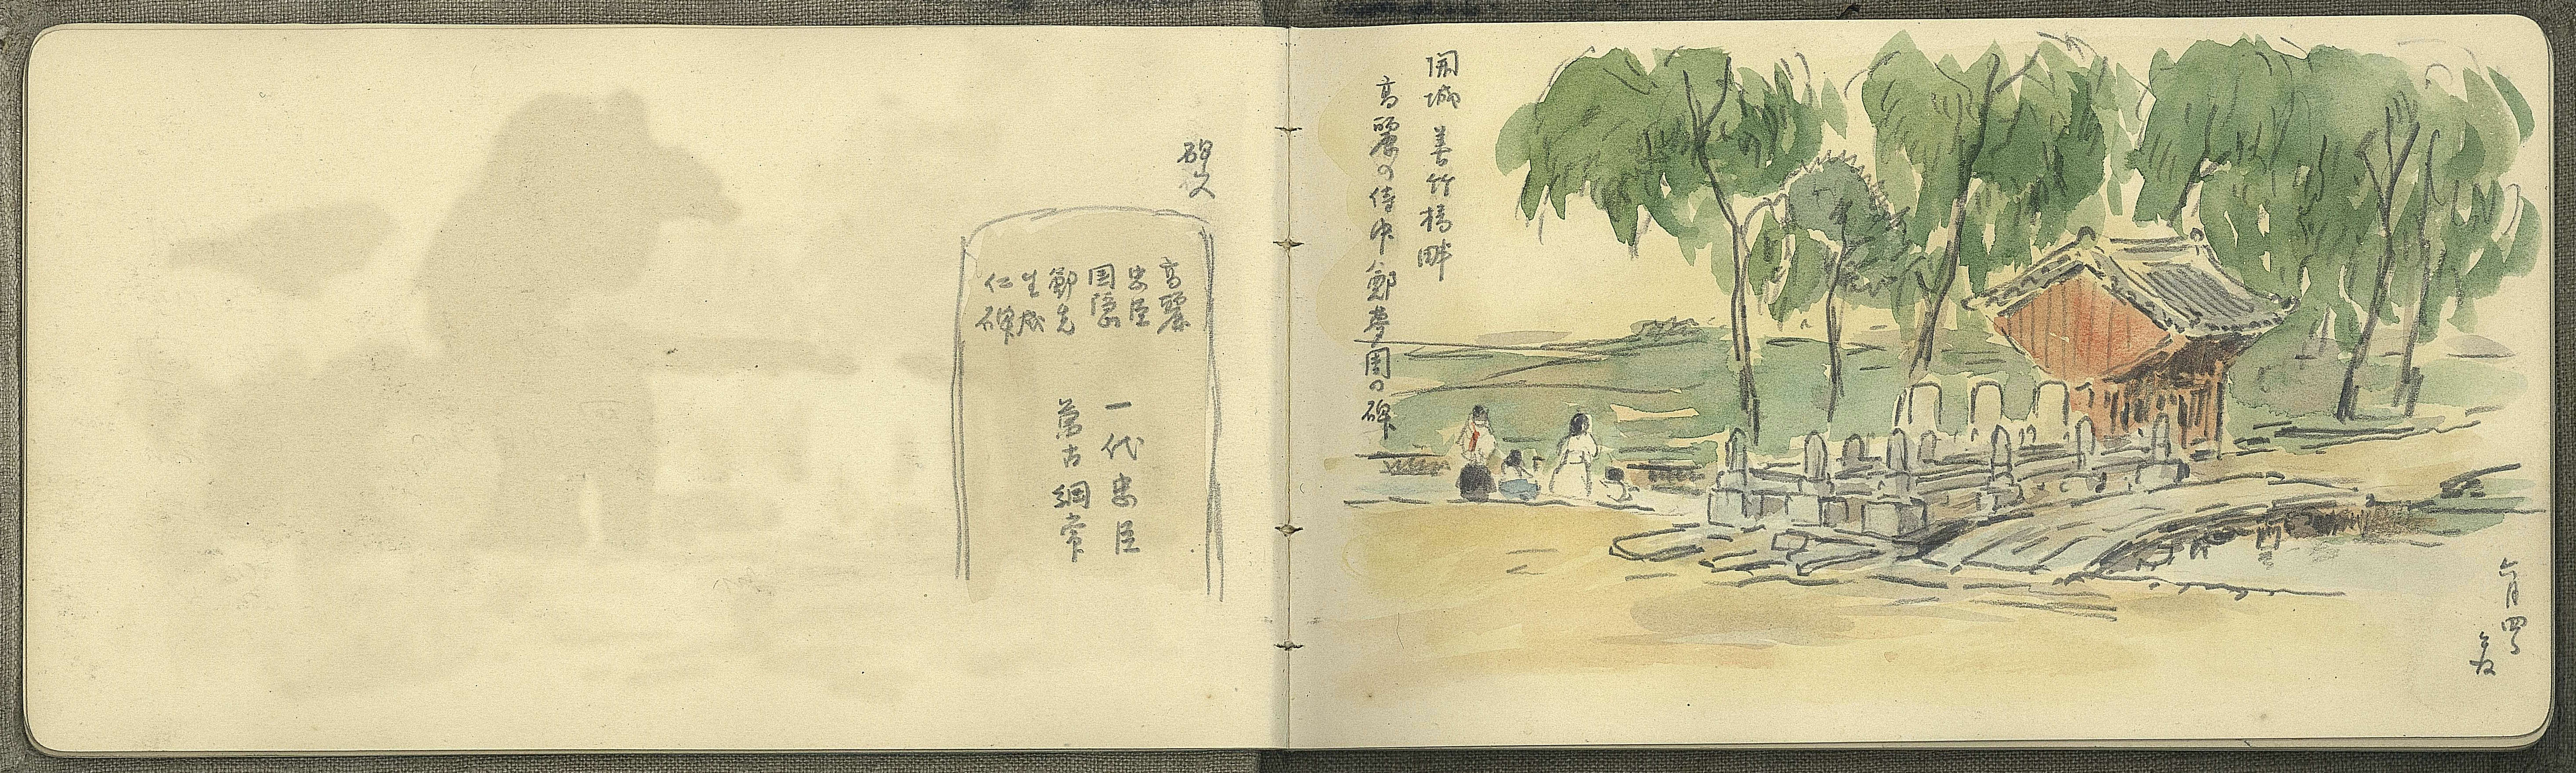 開城 善竹橋畔
高麗の侍中鄭夢周の碑
六月四日
碑文
高麗
忠臣
圃隠
鄭先
生成
仁碑
一代忠臣
萬古綱常